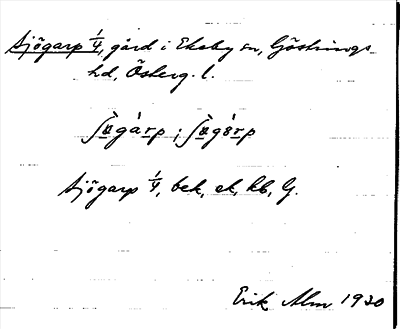 Sjögarp 1/4, gård i Ekeby sn, Göstrings
hd, Österg. l.
ʃøgàrp ; ʃøgàrp
Sjögarp 1/4, bek, ek, kb, G.
Erik Alm 1930